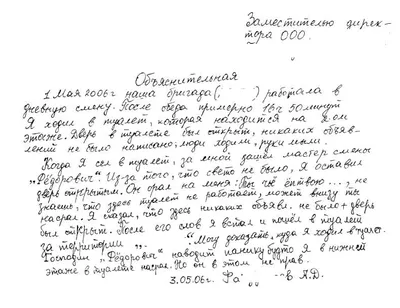 Заместителю дирек-
тора ООО.
Объяснительная
1 Мая 2006г наша бригада ( ) работала в
дневную смену. После обеда примерно 16ч 50минут
Я ходил в туалет, которая находится на 2.ом
этаже. Дверь в туалете был открыт, никаких объяв-
лений не было написано; люди ходили, руки мыли.
Когда Я сел в туалет, за мной зашёл мастер смены
„Фёдорович". Из-за того, что света не было, Я оставил
дверь открытым. Он орал на меня: Ты чё ёптвою..., не
знаешь, что здесь туалет не работает, может внизу ты
насрал. Я сказал, что здесь никаких объявл. не было + дверь
был открыт. После его слов Я встал и пошёл в туалет
за территории „ Могу доказать, куда Я ходил в туал.
Господин „Фёдорович" наводит панику будто Я в нижнем
этаже в туалете насрал. Но он в этом не прав.
3.05.06г. в А.Д.